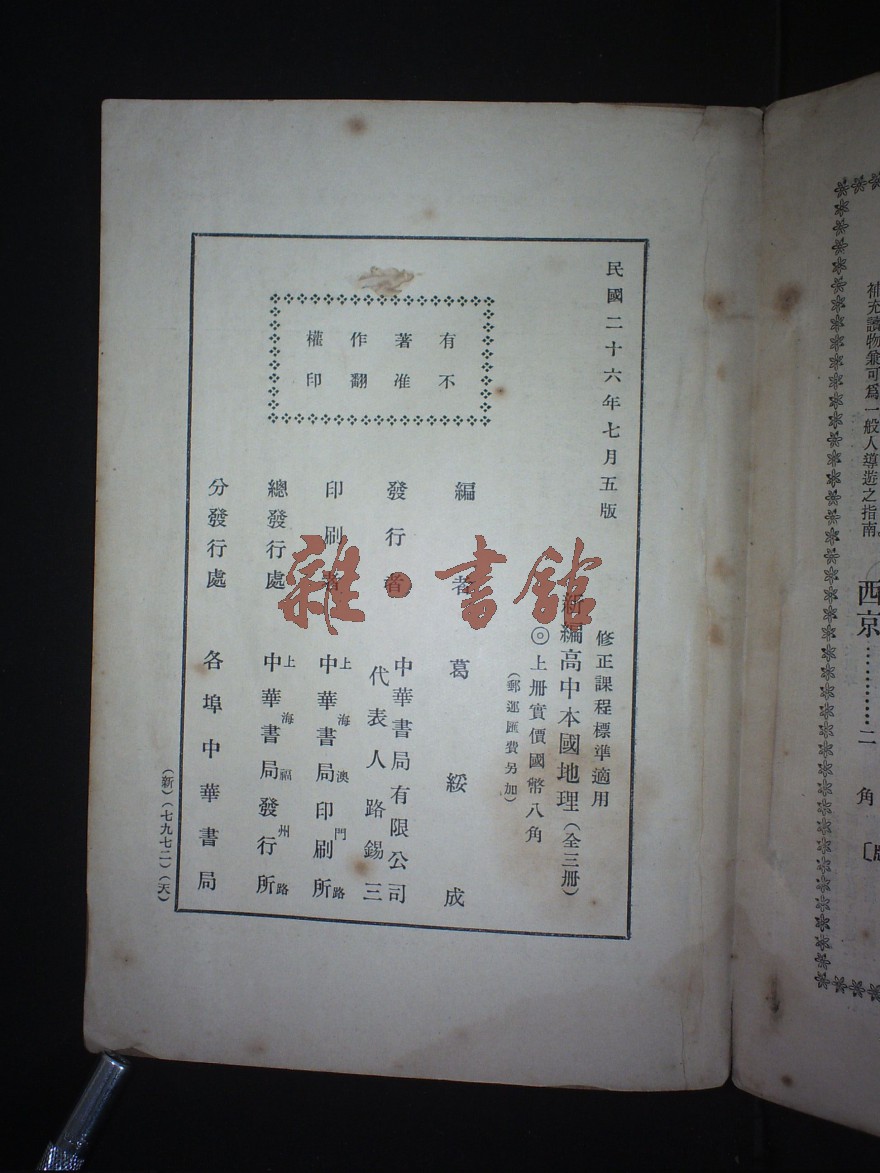 補充讀物兼可爲一般人導遊之指南。
西京…………二角
民國二十六年七月五版
修正課程標準適用
新編高中本國地理（全三册）
◎上册實價國幣八角
（郵運匯費另加）
有著作權
不准翻印
編者 葛綏成
發行者 中華書局有限公司
代表人路錫三
印刷者 上海澳門路
中華書局印刷所
總發行處 上海福州路
中華書局發行所
分發行處 各埠中華書局
（新）（七九七二）（天）
雜·書館